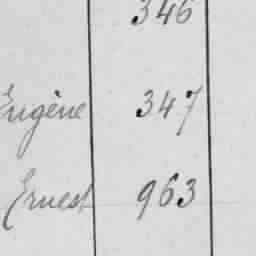 346
Eugène 347
Ernest 963